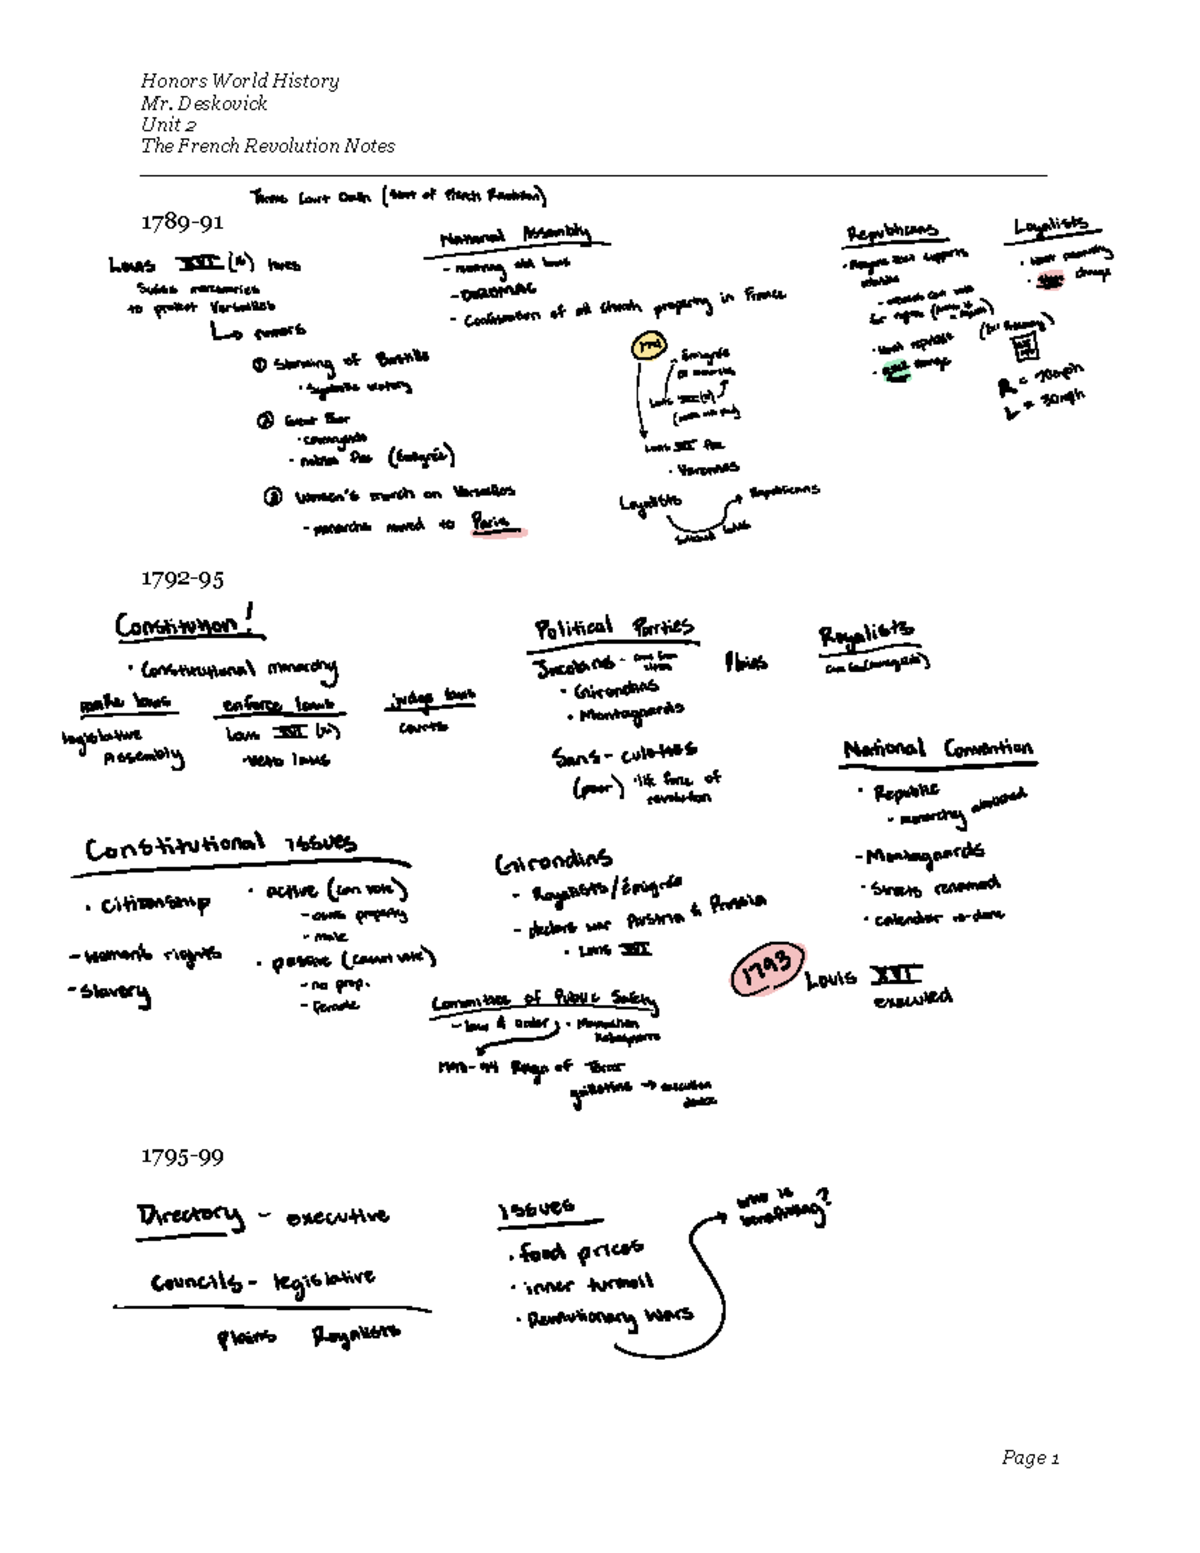 Honors World History
Mr. Deskovick
Unit 2
The French Revolution Notes
Tennis Court Oath (Start of French Revolution)
1789-91
Louis XVI (16) hires
Swiss mercenaries
to protect Versailles
↳ rumors
① Storming of Bastille
• Symbolic victory
② Great Fear
• countryside
• nobles flee (Émigrés)
③ Women's march on Versailles
- monarchs moved to Paris
National Assembly
- rewriting old laws
- DOROMAC
- Confiscation of all church property in France
1791
Émigrés
Louis XVI (16)
Louis XVI flee
• Varennes
Loyalists
Republicans
switched sides
Republicans
• want republic
change
Loyalists
• want monarchy
• slow change
R = 70mph
L = 30mph
1792-95
Constitution!
• Constitutional monarchy
make laws
legislative
Assembly
enforce laws
Louis XVI (16)
• veto laws
judge laws
courts
Political Parties
Jacobins -
• Girondins
• Montagnards
Plains
Royalists
Sans-culottes
(poor) • life force of
revolution
National Convention
• Republic
• monarchy abolished
- Montagnards
• Streets renamed
• calendar re-done
Constitutional issues
• citizenship
- women's rights
- Slavery
• active (can vote)
- owns property
- male
• passive (cannot vote)
- no prop.
- female
Girondins
- Royalists/Émigrés
- declare war Austria & Prussia
• Louis XVI
1793
Louis XVI
executed
Committee of Public Safety
- law & order
• Maximilien
Robespierre
1793-94 Reign of Terror
guillotine → execution
device
1795-99
Directory - executive
Councils - legislative
Plains Royalists
issues
• food prices
• inner turmoil
• Revolutionary Wars
who is
benefitting?
Page 1